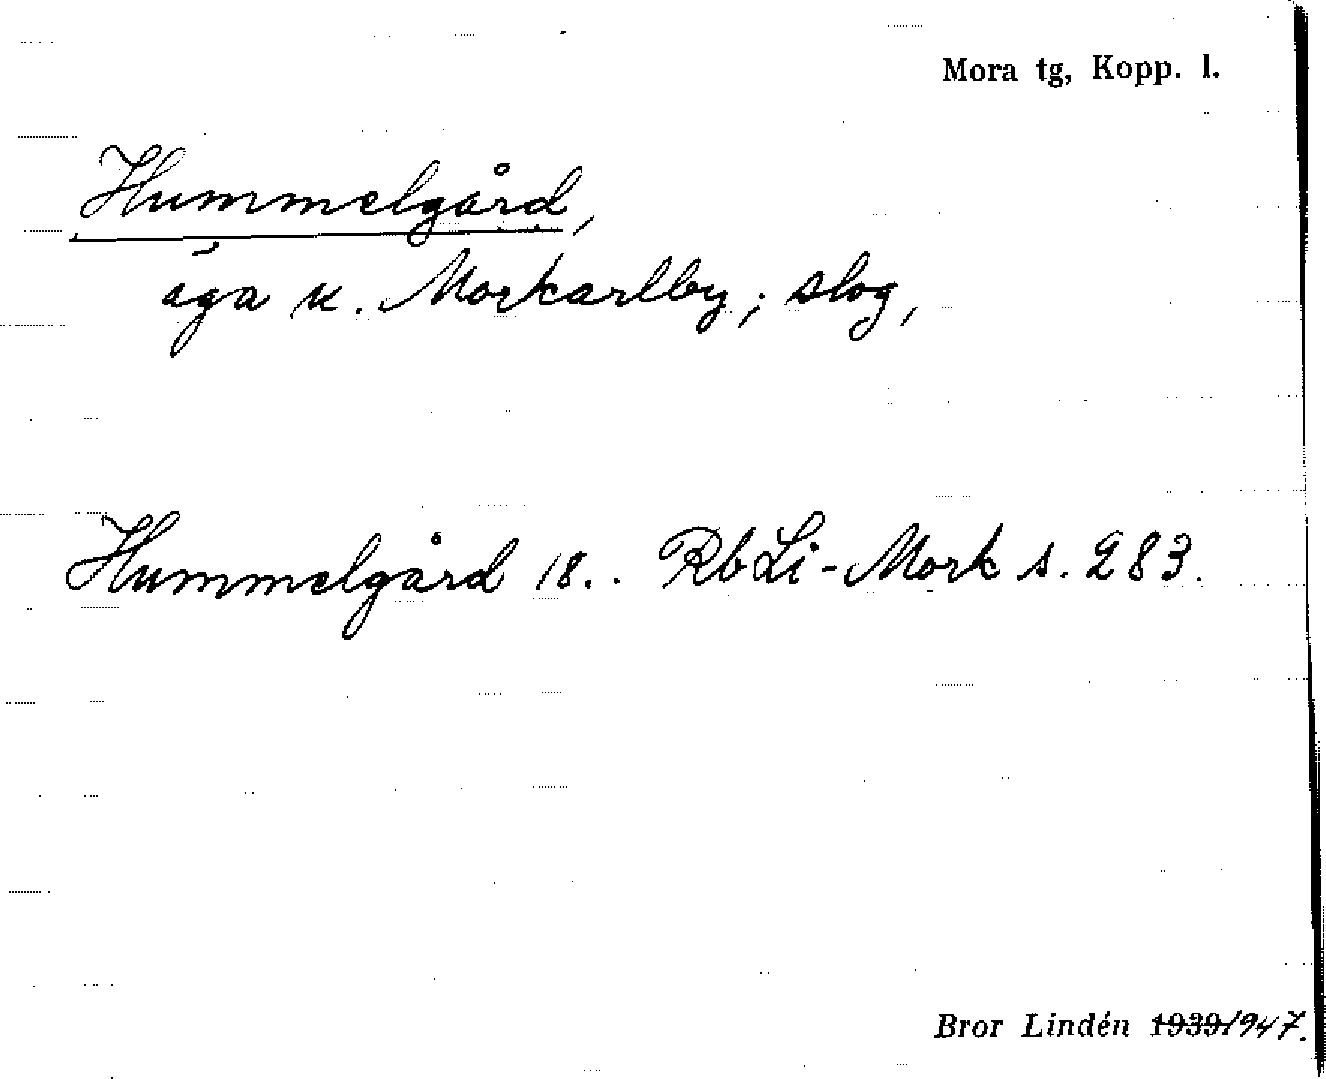 Mora tg, Kopp. l.
Hummelgård,
äga u. Morkarlby; slog,
Hummelgård 18.. RbLi-Mork s. 283.
Bror Lindén 1939 1947.